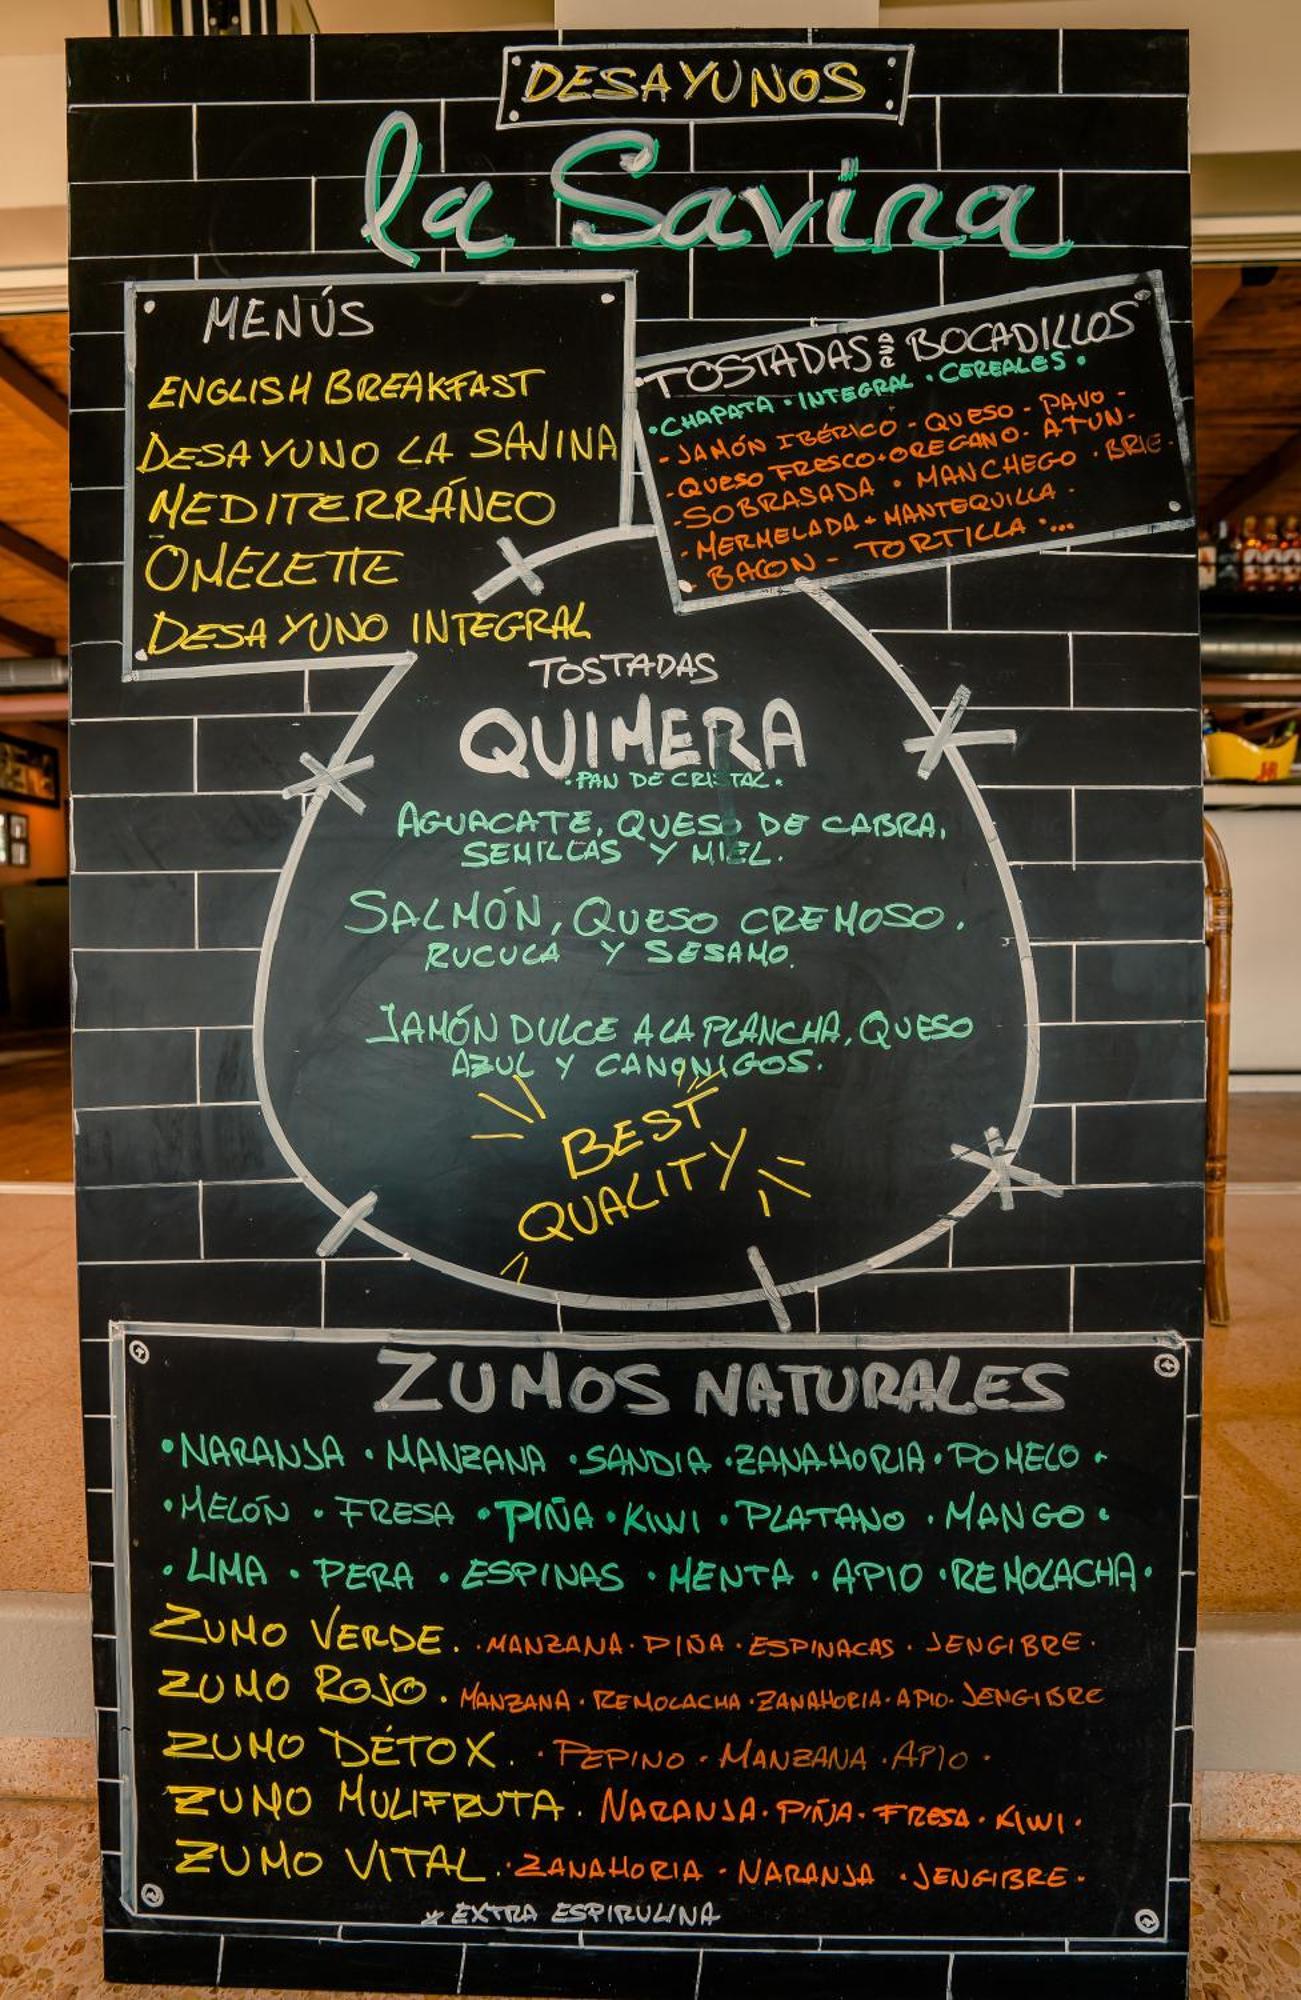 DESAYUNOS
la Savina
MENÚS
ENGLISH BREAKFAST
DESAYUNO LA SAVINA
MEDITERRÁNEO
OMELETTE
DESAYUNO INTEGRAL
TOSTADAS BOCADILLOS
• CHAPATA • INTEGRAL • CEREALES •
- JAMÓN IBÉRICO - QUESO - PAVO -
- QUESO FRESCO + OREGANO - ATUN -
- SOBRASADA • MANCHEGO • BRIE -
- MERMELADA + MANTEQUILLA -
- BACON - TORTILLA •...
TOSTADAS
QUIMERA
• PAN DE CRISTAL •
AGUACATE, QUESO DE CABRA,
SEMILLAS Y MIEL.
SALMÓN, QUESO CREMOSO,
RUCULA Y SESAMO.
JAMÓN DULCE A LA PLANCHA, QUESO
AZUL Y CANONIGOS.
BEST
QUALITY
ZUMOS NATURALES
• NARANJA • MANZANA • SANDIA • ZANAHORIA • POMELO •
• MELÓN • FRESA • PIÑA • KIWI • PLATANO • MANGO •
• LIMA • PERA • ESPINAS • MENTA • APIO • REMOLACHA •
ZUMO VERDE. • MANZANA • PIÑA • ESPINACAS • JENGIBRE •
ZUMO ROJO. MANZANA • REMOLACHA • ZANAHORIA • APIO • JENGIBRE
ZUMO DÉTOX. • PEPINO • MANZANA • APIO •
ZUMO MULIFRUTA. NARANJA • PIÑA • FRESA • KIWI •
ZUMO VITAL. • ZANAHORIA • NARANJA • JENGIBRE •
* EXTRA ESPIRULINA